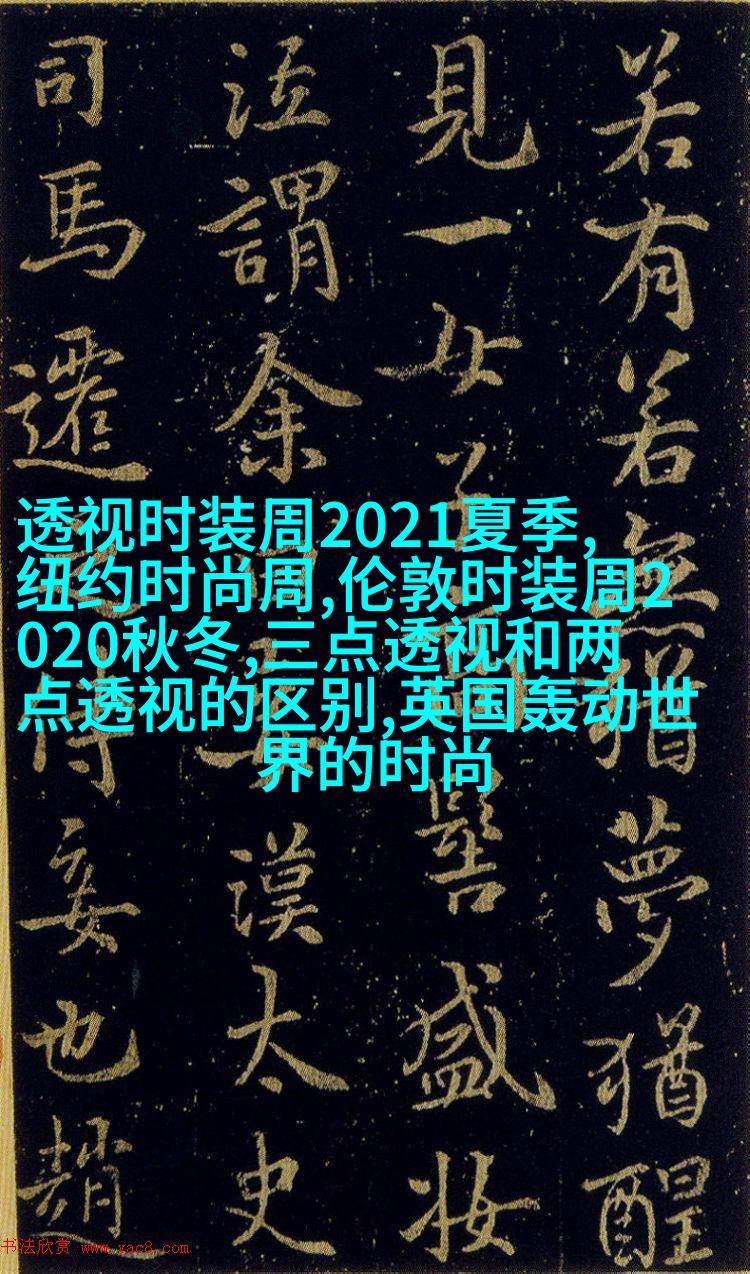 若有若無猶夢猶醒
見一女子髻盛妝
泣謂余妾漢太史
司馬遷侍妾也趙
透视时装周2021夏季,
纽约时尚周,伦敦时装周2
020秋冬,三点透视和两
点透视的区别,英国轰动世
界的时尚
书法欣赏 www.yac8.com